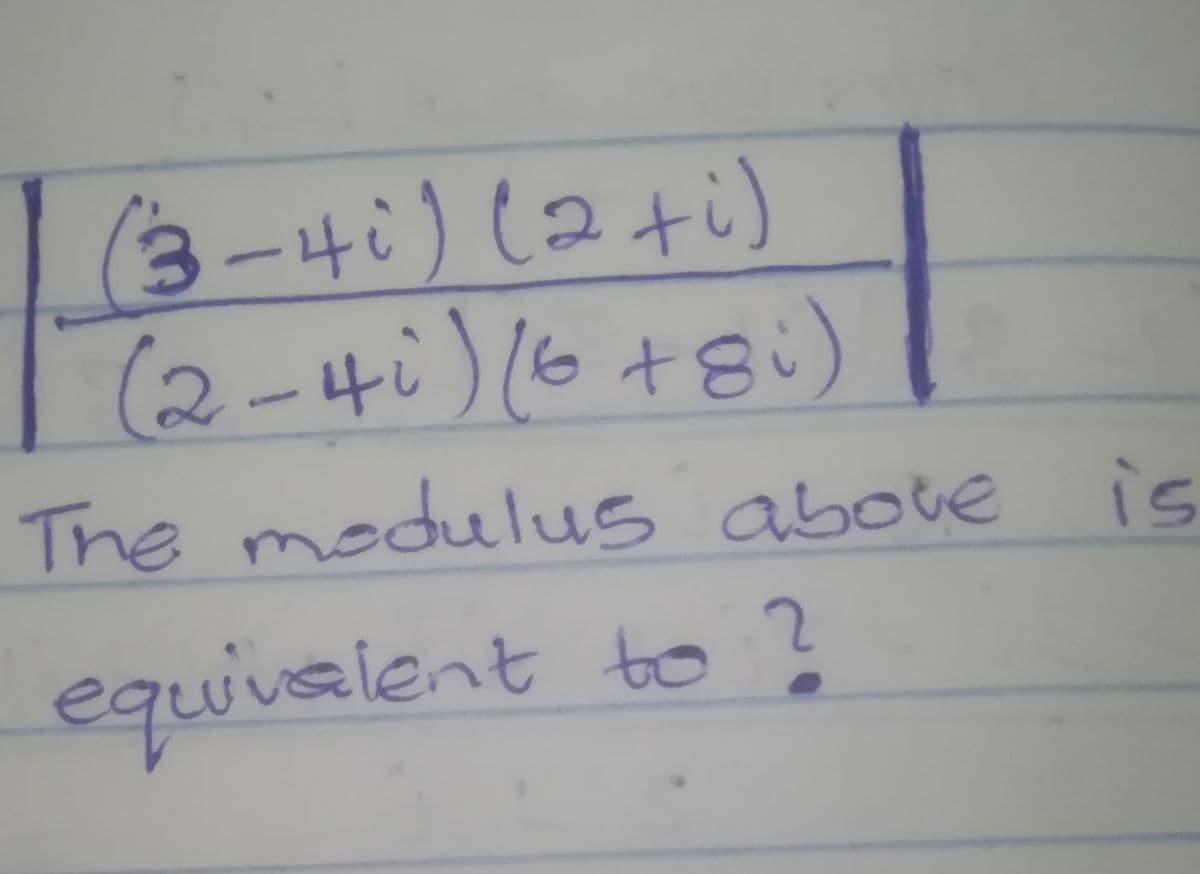 | (3-4i) (2+i) |
| (2-4i)(6+8i) |
The modulus above is
equivalent to ?